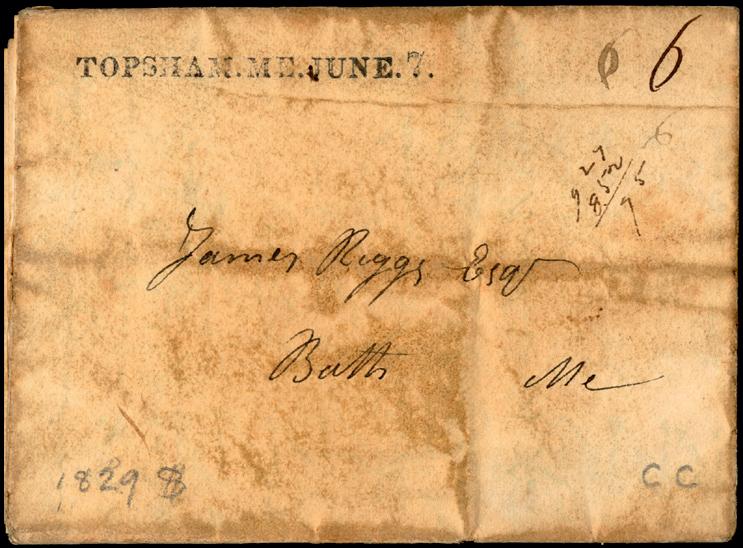 TOPSHAM.ME.JUNE.7.
6 6
6
James Riggs Esqr
Bath Me
1829 8
C C